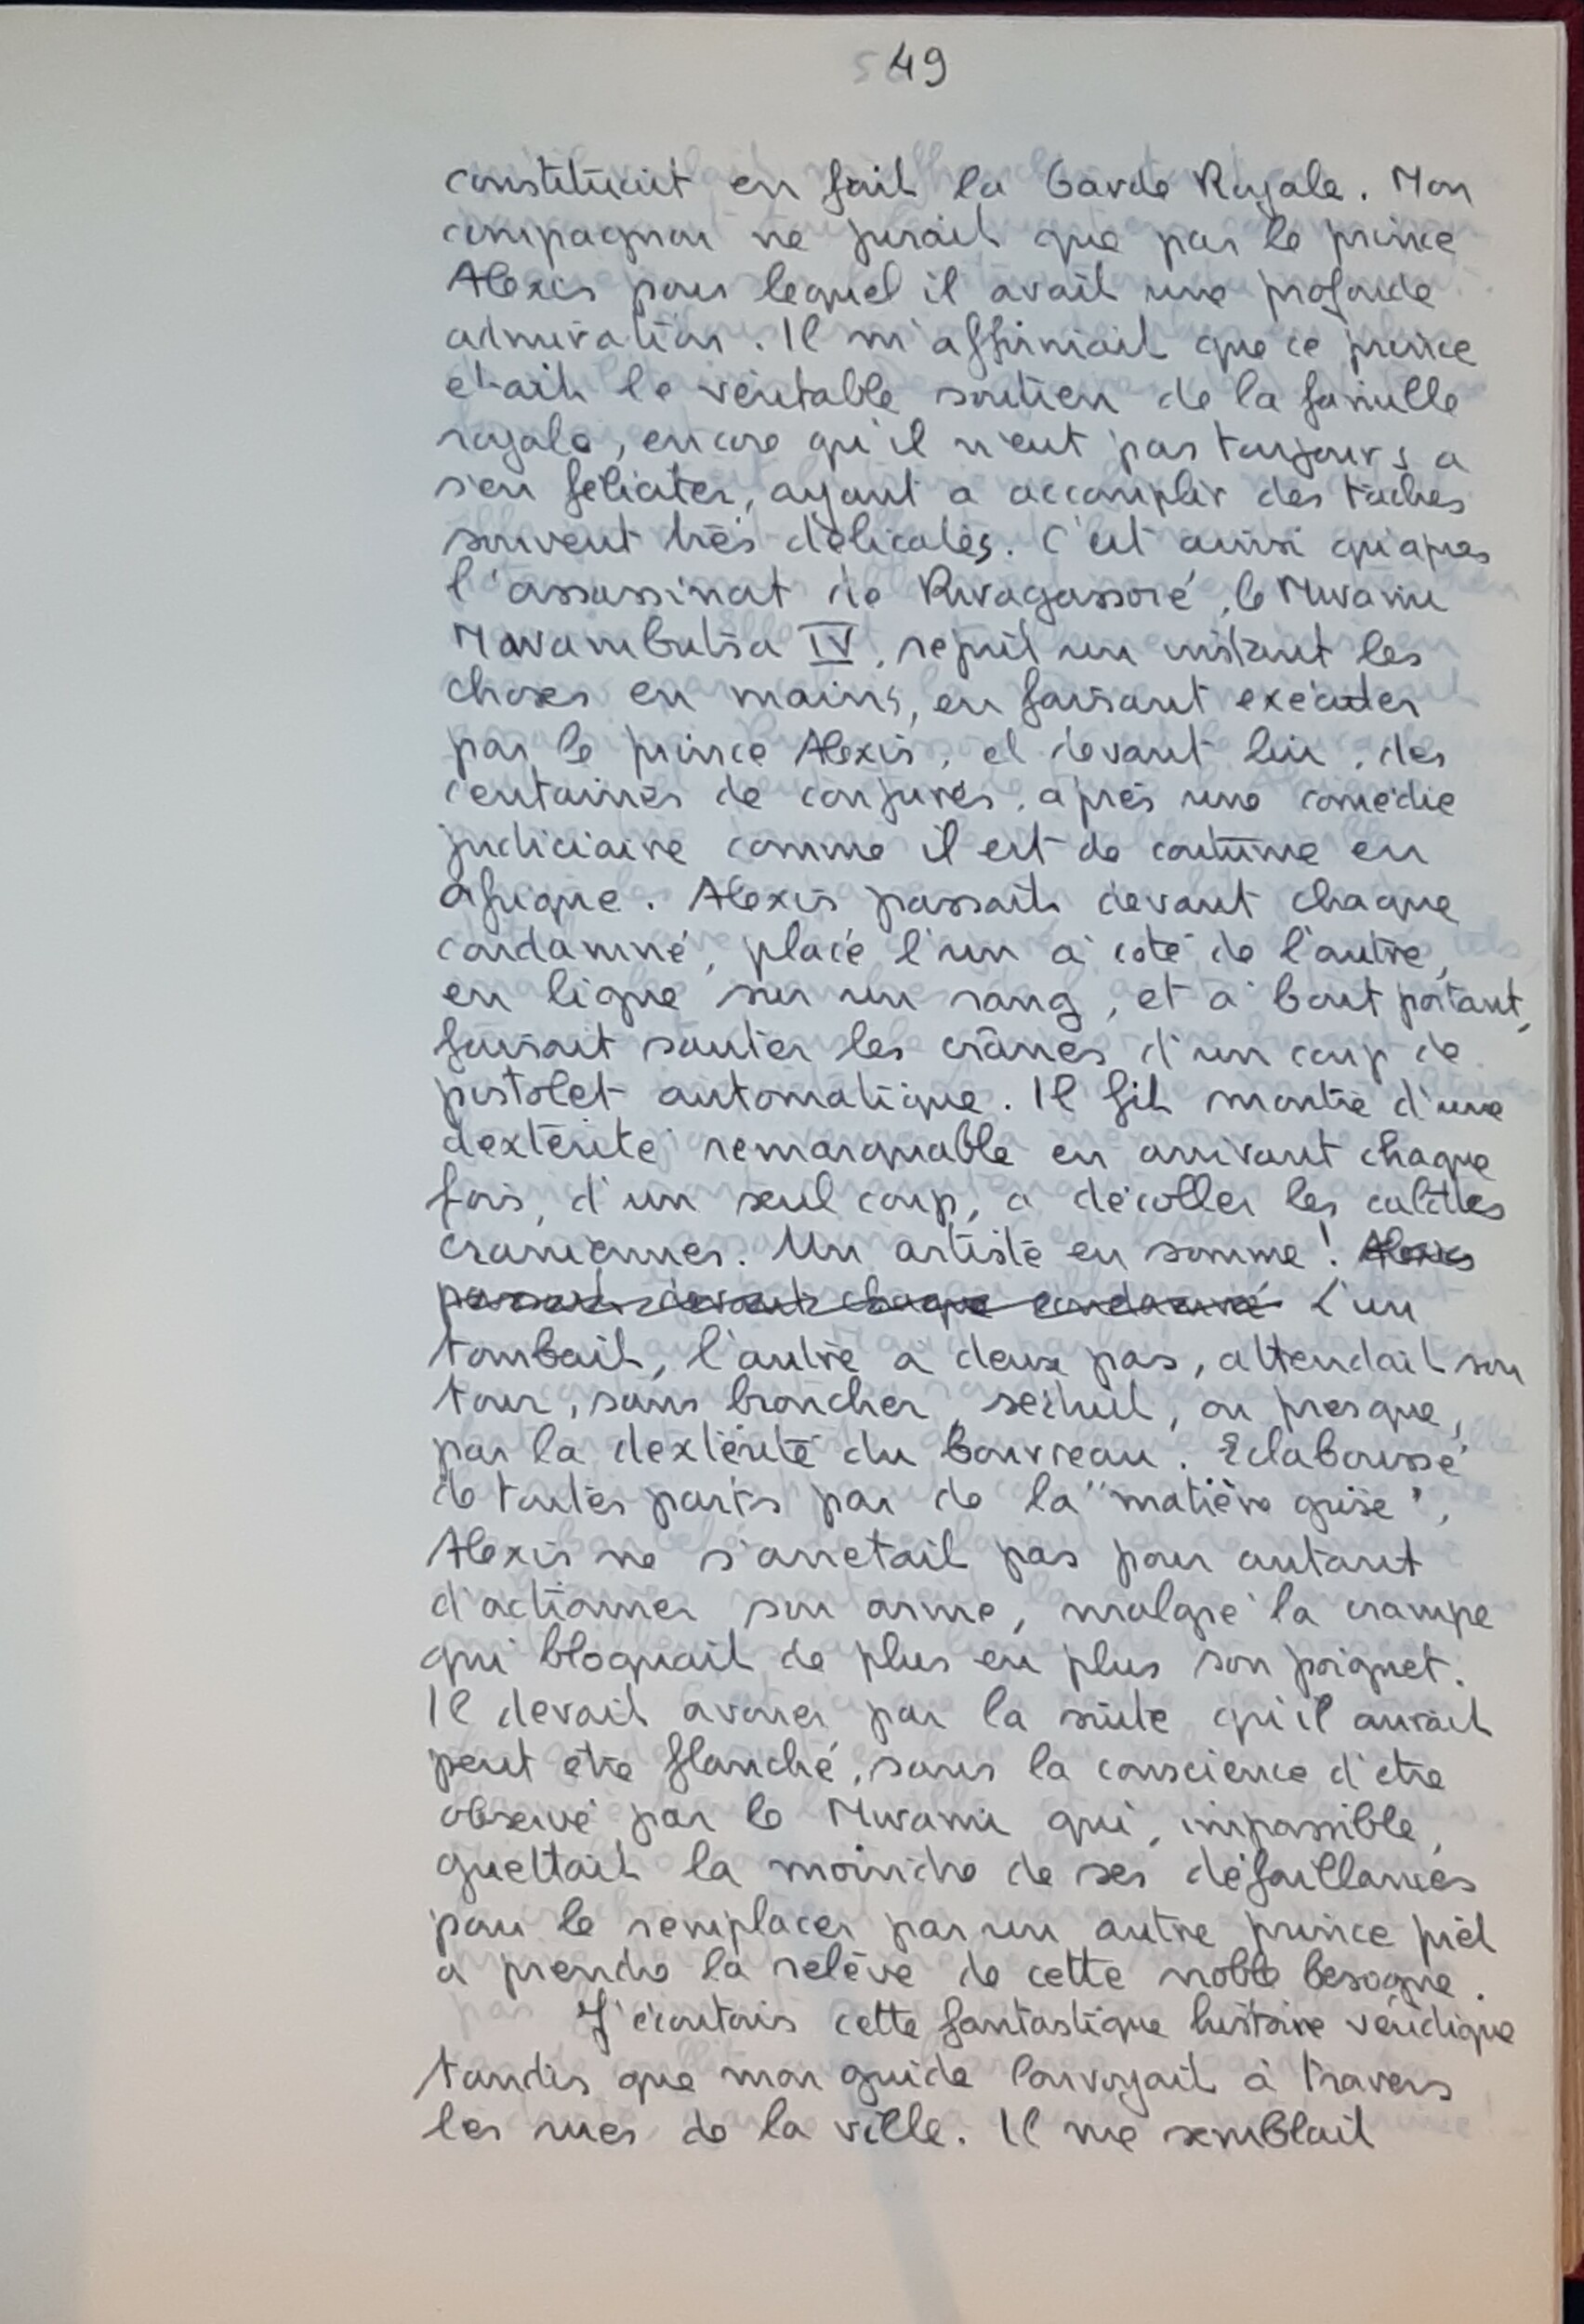 49
constituait en fait la Garde Royale. Mon
compagnon ne jurait que par le prince
Alexis pour lequel il avait une profonde
admiration. Il m'affirmait que ce prince
était le véritable soutien de la famille
royale, encore qu'il n'eut pas toujours a
s'en féliciter, ayant a accomplir des tâches
souvent très délicates. C'est ainsi qu'apres
l'assassinat de Rwagassoré, le Mwami
Mwambutsa IV, reprit un instant les
choses en mains, en faisant exécuter
par le prince Alexis, et devant lui, des
centaines de conjurés, après une comédie
judiciaire comme il est de coutume en
Afrique. Alexis passait devant chaque
condamné, placé l'un à coté de l'autre,
en ligne sur un rang, et à bout portant,
faisait sauter les crânes d'un coup de
pistolet automatique. Il fit montre d'une
dextérité remarquable en arrivant chaque
fois, d'un seul coup, a décoller les calottes
craniennes. Un artiste en somme ! Alexis
passait devant chaque condamné L'un
tombait, l'autre a deux pas, attendait son
tour, sans broncher, séduit, ou presque,
par la dextérité du bourreau. Eclaboussé
de toutes parts par de la "matière grise",
Alexis ne s'arretait pas pour autant
d'actionner son arme, malgré la crampe
qui bloquait de plus en plus son poignet.
Il devait avouer par la suite qu'il aurait
peut etre flanché, sans la conscience d'etre
observé par le Mwami qui, impassible,
guettait la moindre de ses défaillances
pour le remplacer par un autre prince prêt
a prendre la relève de cette noble besogne.
J'écoutais cette fantastique histoire véridique
tandis que mon guide louvoyait à travers
les rues de la ville. Il me semblait